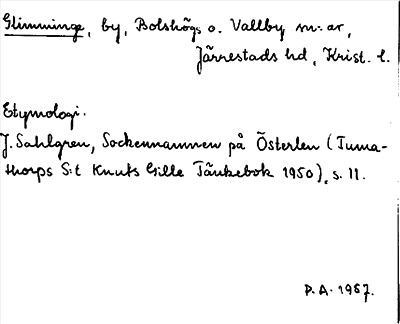 Glimminge, by, Bolshögs o. Vallby sn:ar,
Järrestads hd, Krist. l.
Etymologi.
J. Sahlgren, Sockennamnen på Österlen (Tuma-
thorps S:t Knuts Gille Tänkebok 1950), s. 11.
P.A. 1957.